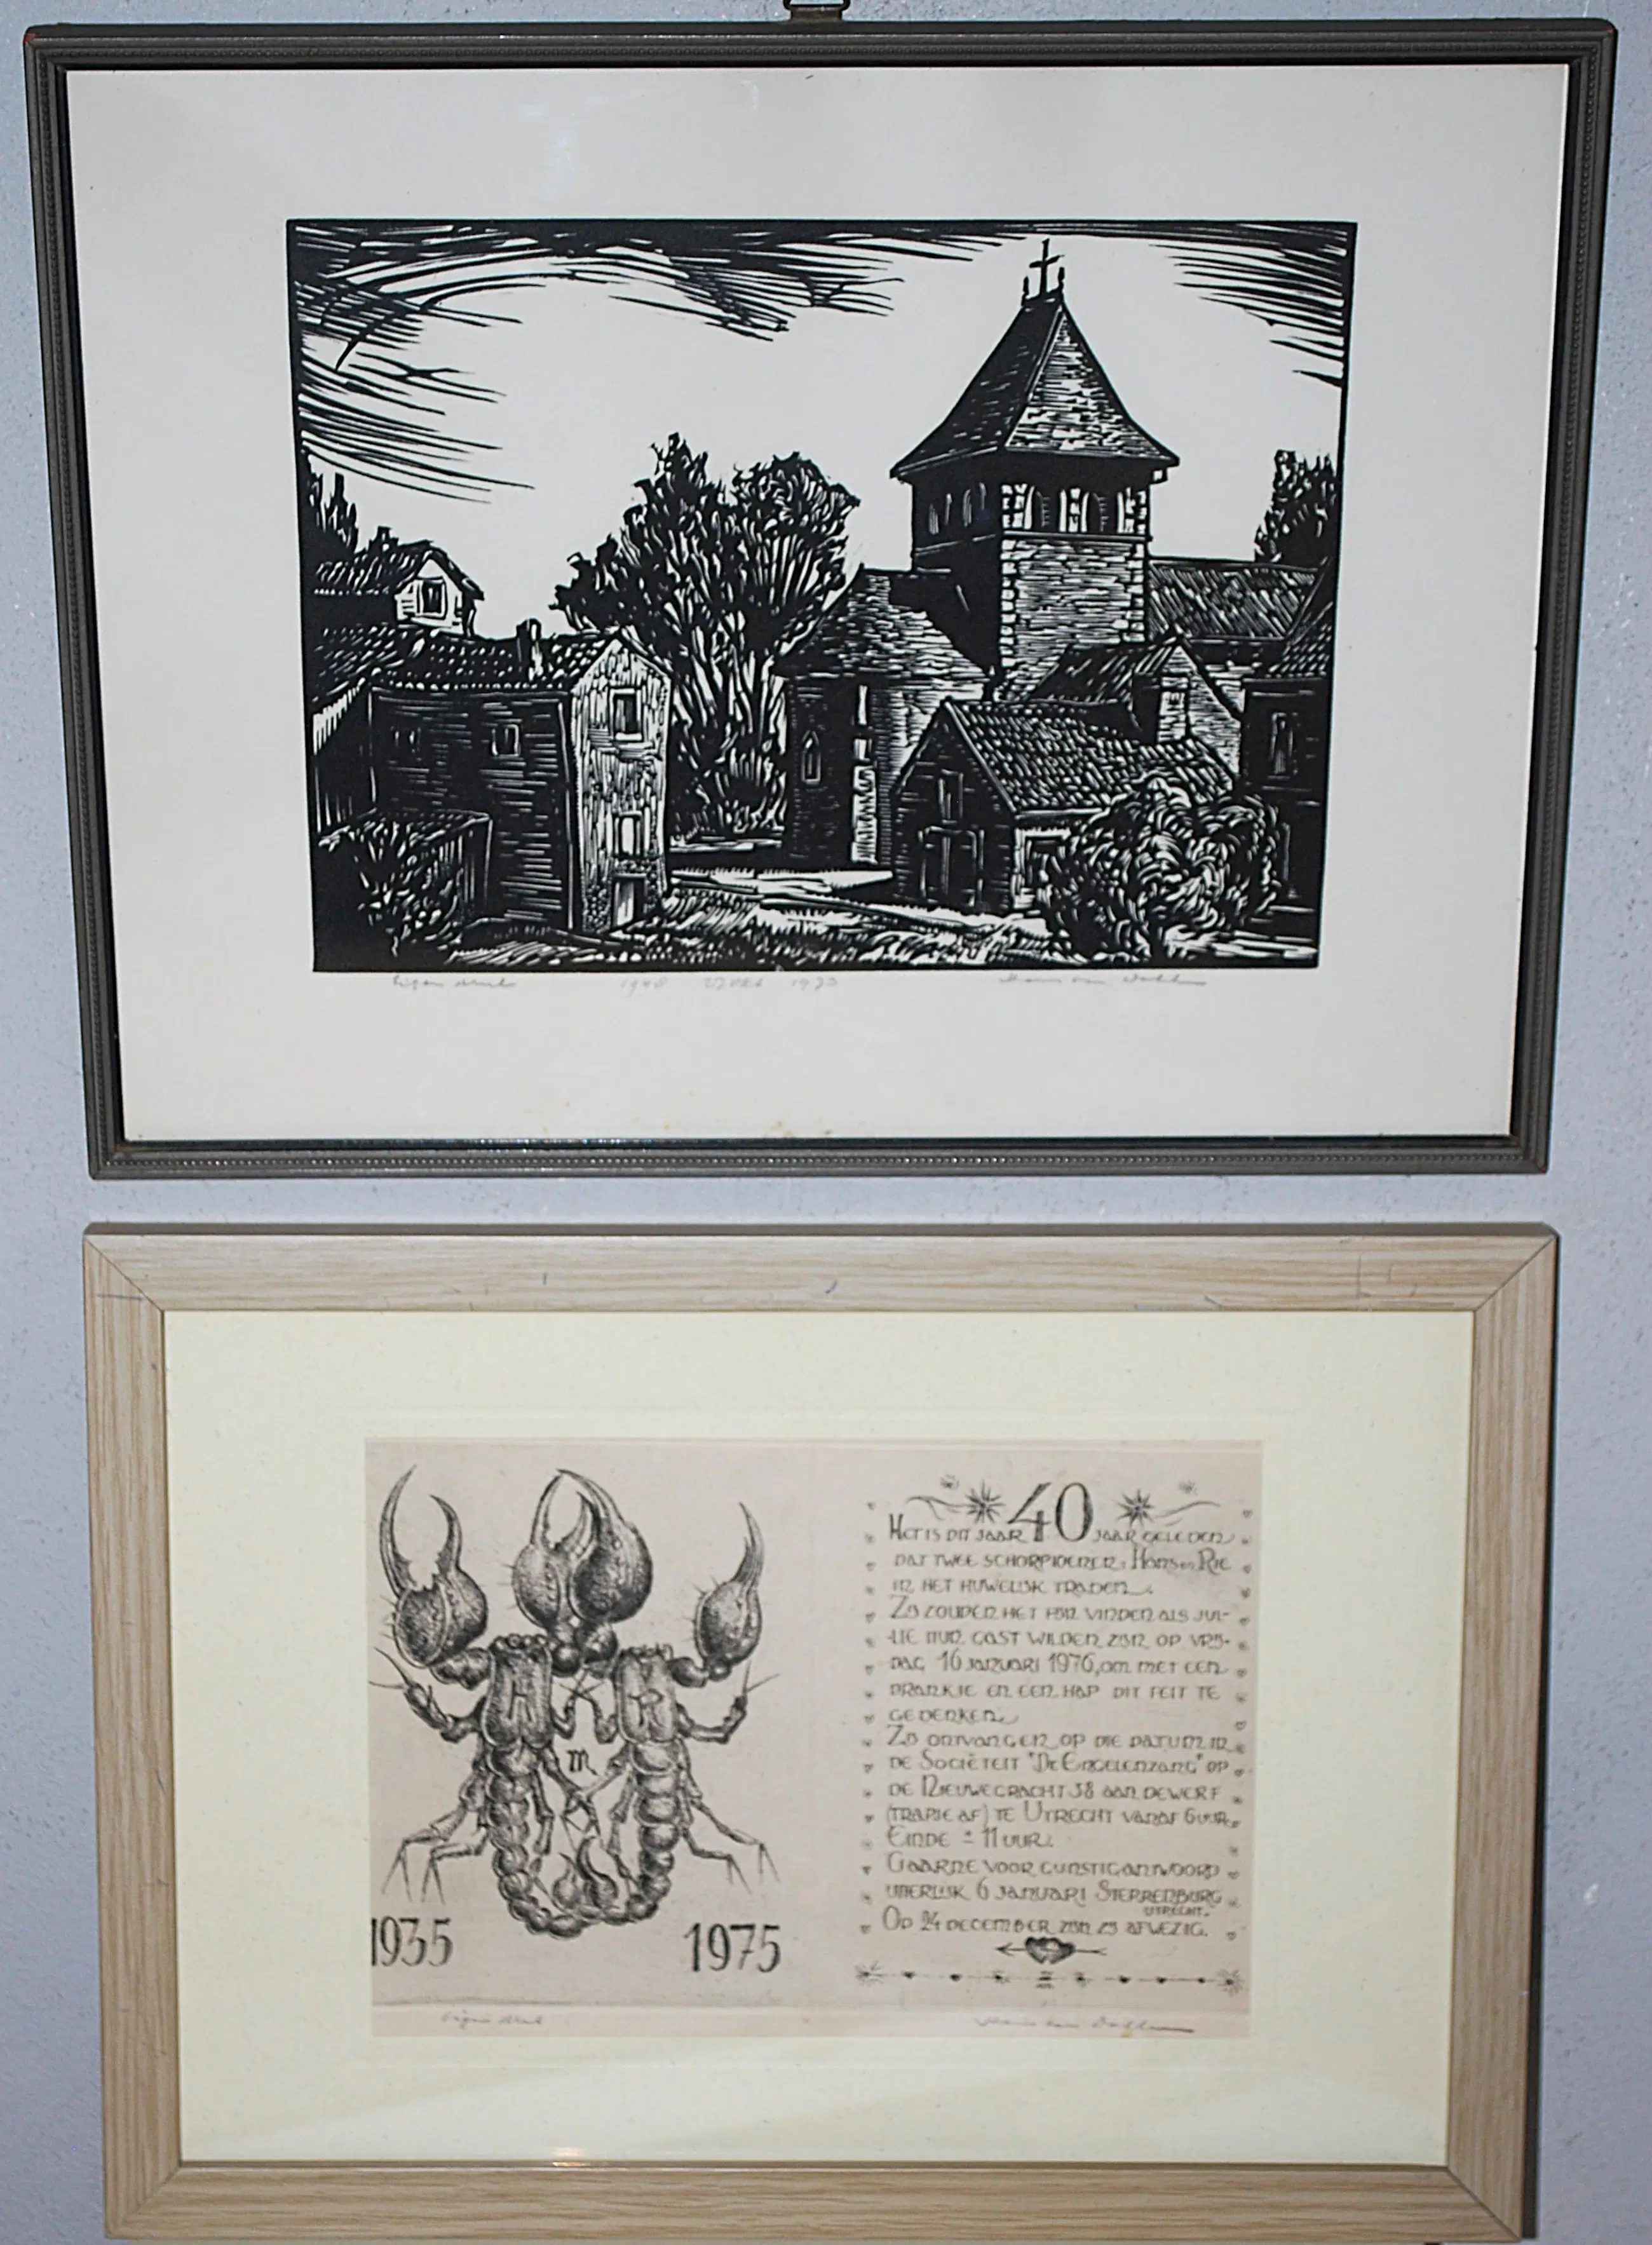 Eigen druk 1948 1973 Hans van Dokkum
H R
1935 1975
40
HET IS DIT JAAR JAAR GELEDEN
DAT TWEE SCHORPIOENEN: HANS EN RIE
IN HET HUWELIJK TRADEN.
ZIJ ZOUDEN HET FIJN VINDEN ALS JUL-
LIE HUN GAST WILDEN ZIJN OP VRIJ-
DAG 16 JANUARI 1976, OM MET EEN
DRANKJE EN EEN HAP DIT FEIT TE
GEDENKEN.
ZIJ ONTVANGEN OP DIE DATUM IN
DE SOCIËTEIT "DE ENGELENZANG" OP
DE NIEUWEGRACHT 38 AAN DE WERF
(TRAPJE AF) TE UTRECHT VANAF 6 UUR.
EINDE ± 11 UUR.
GAARNE VOOR GUNSTIG ANTWOORD
UITERLIJK 6 JANUARI STERRENBURG
UTRECHT.
OP 24 DECEMBER ZIJN ZIJ AFWEZIG.
Eigen druk Hans van Dokkum